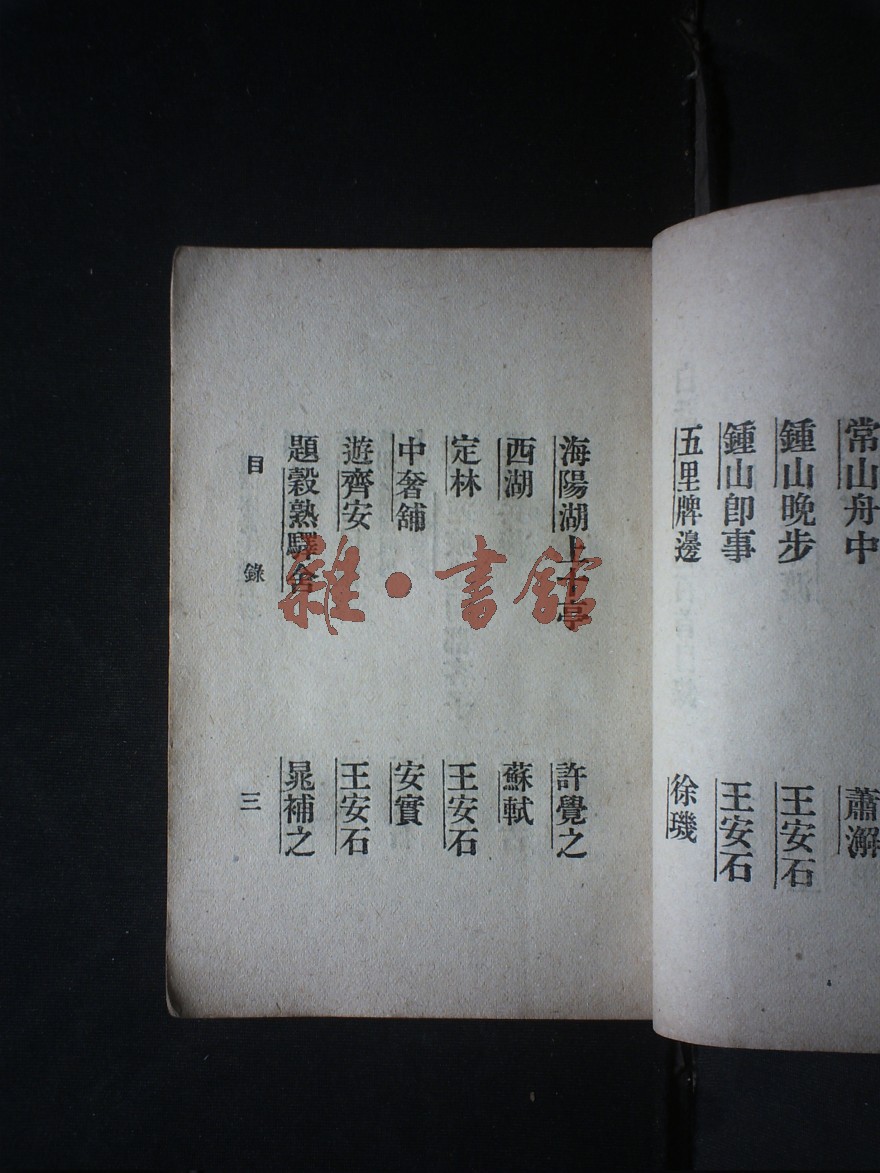 常山舟中 蕭澥
鍾山晚步 王安石
鍾山卽事 王安石
五里牌邊 徐璣
海陽湖上十亭 許覺之
西湖 蘇軾
定林 王安石
中奢舖 安實
遊齊安 王安石
題穀熟驛舍 晁補之
目錄 三
雜·書館